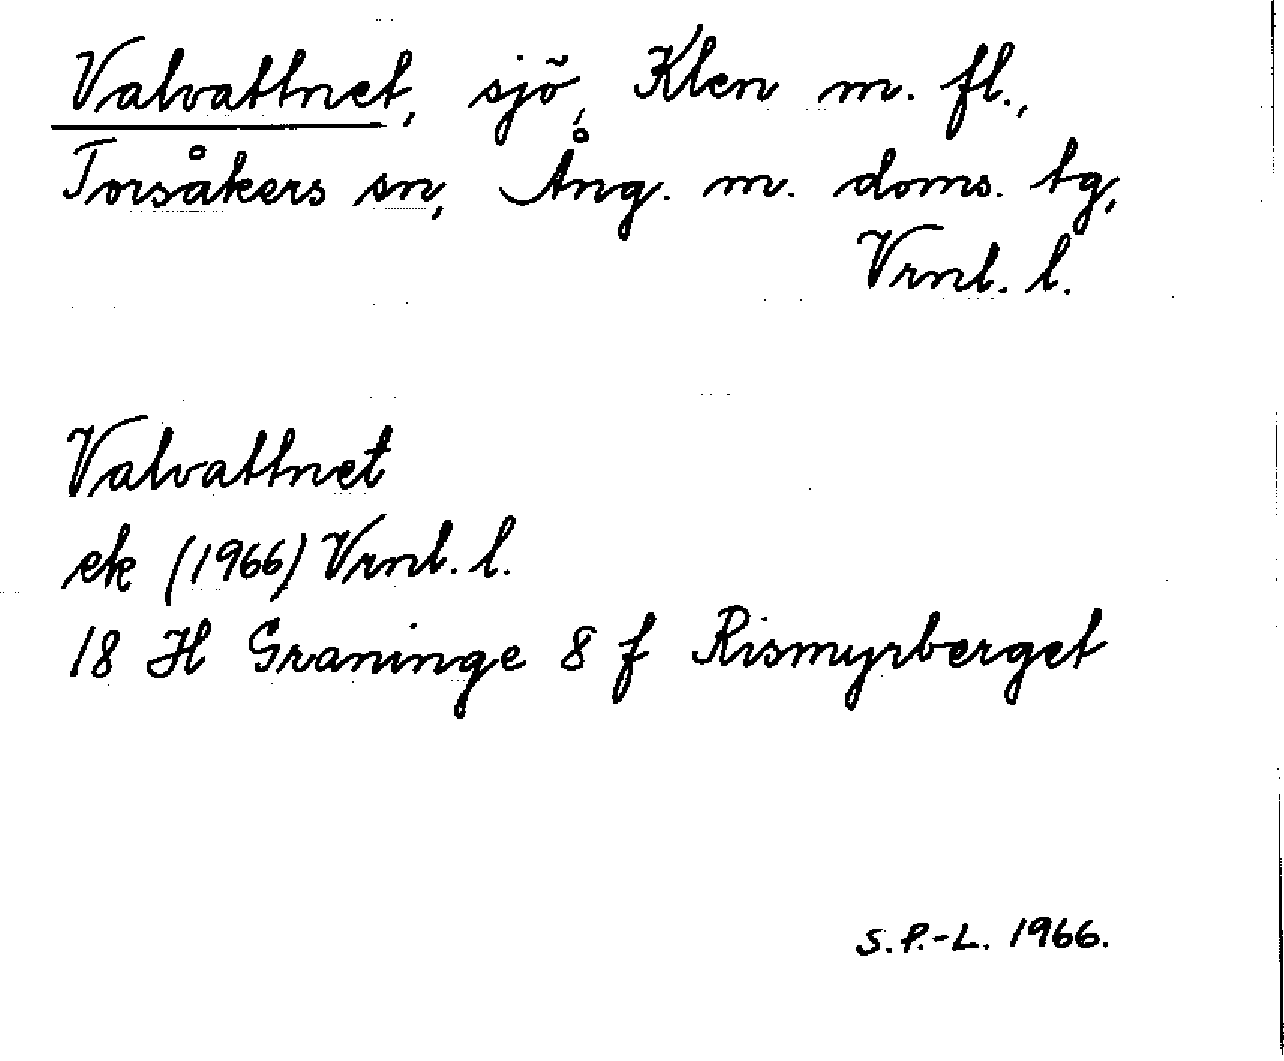 Valvattnet, sjö, Klen m. fl.,
Torsåkers sn, Ång. m. doms. tg,
Vrnl. l.
Valvattnet
ek (1966) Vrnl. l.
18 H Graninge 8 f Rismyrberget
S.P.-L. 1966.